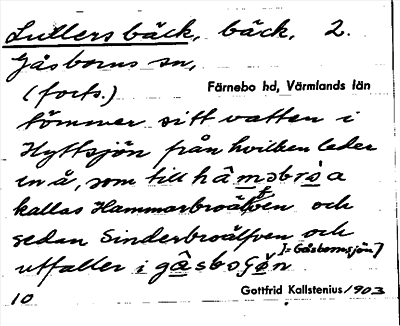 Lullersbäck, bäck, 2.
Gåsborns sn,
Färnebo hd, Värmlands län
(forts.)
tömmer sitt vatten i
Hyttsjön från hvilken leder
en å, som till
kallas Hammarbroälfven och
sedan Sinderbroälfven och
[= Gåsbornssjön]
utfaller i gåsbosjön
Gottfrid Kallstenius/1903
10